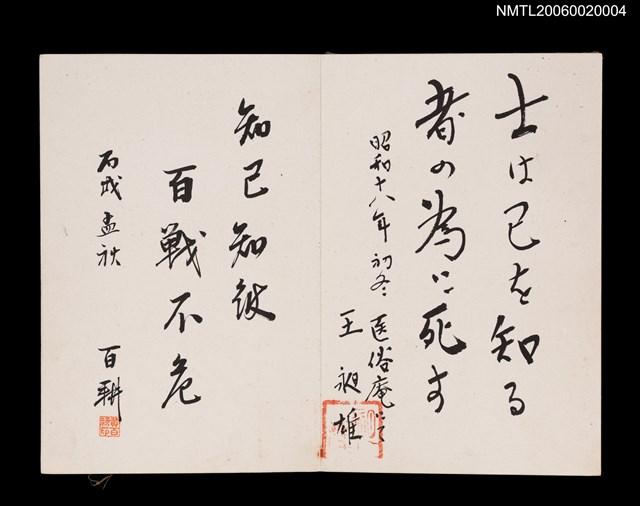 NMTL20060020004
士は己を知る
者の為に死す
昭和十八年初冬 医俗庵にて
王昶雄
知己知彼
百戦不危
丙戌孟秋 百耕